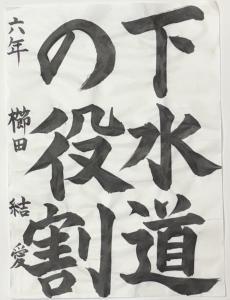 下水道
の役割
六年 櫛田 結愛